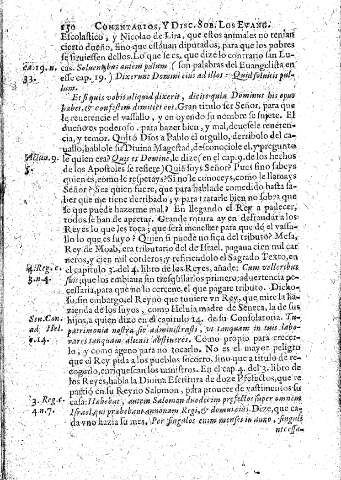 150 COMENTARIOS, Y DISC. SOB. LOS EVANG.
Escolastico, y Nicolao de Lira, que estos animales no tenían
cierto dueño, sino que estauan diputados, para que los pobres
se siruiessen dellos. Lo que se es, que dize lo contrario san Lu-
ca. 19. n. 33.
cas. Soluentibus autem pullum (son palabras del Euangelista en
esse cap. 19.) Dixerunt Domini eius ad illos: Quid soluitis pul-
lum.
Et si quis vobis aliquid dixerit, dicite quia Dominus his opus
habet, & confestim dimittet eos. Gran titulo ser Señor, para que
le reuerencie el vassallo, y en oyendo su nombre se sujete. El
dueño es poderoso, para hazer bien, y mal, deuesele reueren-
cia, y temor. Quitó Dios a Pablo el orgullo, derribolo del ca-
uallo, hablole su Diuina Magestad, desconociole el, y pregunta
Actuu. 9. 5.
le quien era? Quis es Domine, le dize (en el cap. 9. de los hechos
de los Apostoles se refiere) Quié soys Señor? Pues sino sabeys
quien es, como le respetays? Si no le conoceys, como le llamays
Señor? Sea quien fuere, que para hablarle comedido basta sa-
ber que me tiene derribado, y para tratarle bien no sobra que
se que puede hazerme mal? En llegando el Rey a padecer,
todos se han de apretar. Grande rotura ay en desfrandar a los
Reyes lo que les toca; que será menester para que dé el vassa-
llo lo que es suyo? Quien se puede no fiça del tributo? Mesa,
Rey de Moab, era tributario del de Israel, pagaua cien mil car
neros, y cien mil corderos; y refiriendolo el Sagrado Texto, en
4. Reg. c. 3. n. 4.
el capitulo 3. del 4. libro de los Reyes, añade: Cum velleribus
suis; que los embiaua sin trasquilarlos primero; aduertencia ne-
cessaria, para que no lo cercene, el que pagare tributo. Dicho-
so, sin embargo el Reyno que tuuiere vn Rey, que mire la ha-
zienda de los suyos, como Heluia madre de Seneca, la de sus
Sen. Con. ad Hel. c. 14.
hijos, a quien dixo en el capitulo 14. de su Consolatoria. Tu
patrimonia nostra sic administrasti, vt tanquam in tuis labo-
rares tanquam alienis abstineres. Como propio para crecer-
lo, y como ageno para no tocarlo. No es el mayor peligro
que el Rey pida a los pueblos socorro, sino que a titulo de re-
cogerlo, enriquescan los ministros. En el cap. 4. del 3. libro de
los Reyes, habla la Diuina Escritura de doze Prefectos, que re-
partió en su Reyno Salomon, para proueer de vastimentos su
3. Reg. c. 4. n. 7.
casa: Habebat, autem Salomon duodecim præfectos super omnem
Israel, qui præbebant annonam Regi, & domui eius. Dize, que ca-
da vno hazia su mes, Per singulos enim menses in anno, singuli
necessa-